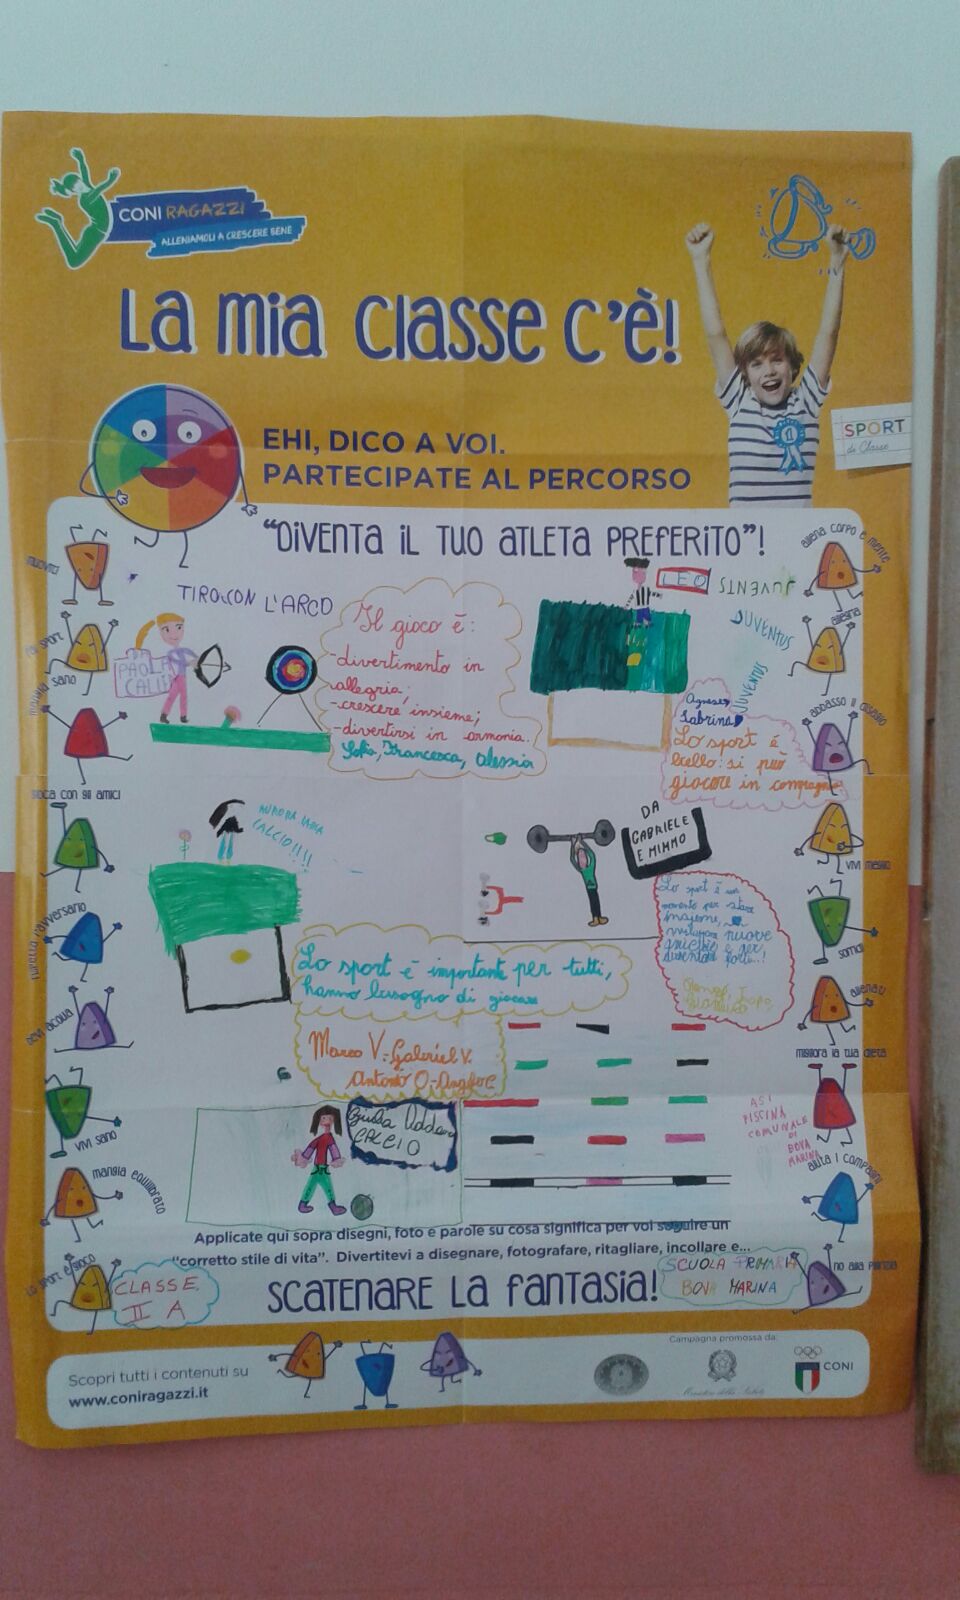 CONI RAGAZZI
ALLENIAMOLI A CRESCERE BENE
La mia classe c'è!
SPORT
di Classe
EHI, DICO A VOI.
PARTECIPATE AL PERCORSO
"Diventa il tuo atleta preferito"!
muoviti
fai sport
mangia sano
gioca con gli amici
rispetta l'avversario
bevi acqua
vivi sano
mangia equilibrato
lo sport è gioco
allena corpo e mente
allegria
abbasso il disagio
vivi meglio
sorridi
allenati
migliora la tua dieta
aiuta i compagni
no alla pigrizia
TIRO CON L'ARCO
PAOLA
Il gioco è:
-divertimento in
allegria;
-crescere insieme;
-divertirsi in armonia.
Sofia, Francesca, Alessia
LEO
JUVENTUS
JUVENTUS
JUVENTUS
Agnese
Sabrina
Lo sport è
bello: si può
giocare in compagnia
AURORA
CALCIO!!!!
DA
GABRIELE
E MIMMO
Lo sport è un
momento per stare
insieme,
sviluppare nuove
amicizie e per
diventare forti..!
Lo sport è importante per tutti,
hanno bisogno di giocare
Marco V.-Gabriel V.
Antonio O-
Giulia
CALCIO
ASI
PISCINA
COMUNALE
DI
BOVA
MARINA
Applicate qui sopra disegni, foto e parole su cosa significa per voi seguire un
"corretto stile di vita". Divertitevi a disegnare, fotografare, ritagliare, incollare e...
scatenare la fantasia!
CLASSE
II A
SCUOLA PRIMARIA
BOVA MARINA
Scopri tutti i contenuti su
www.coniragazzi.it
Campagna promossa da:
Ministero della Salute
CONI